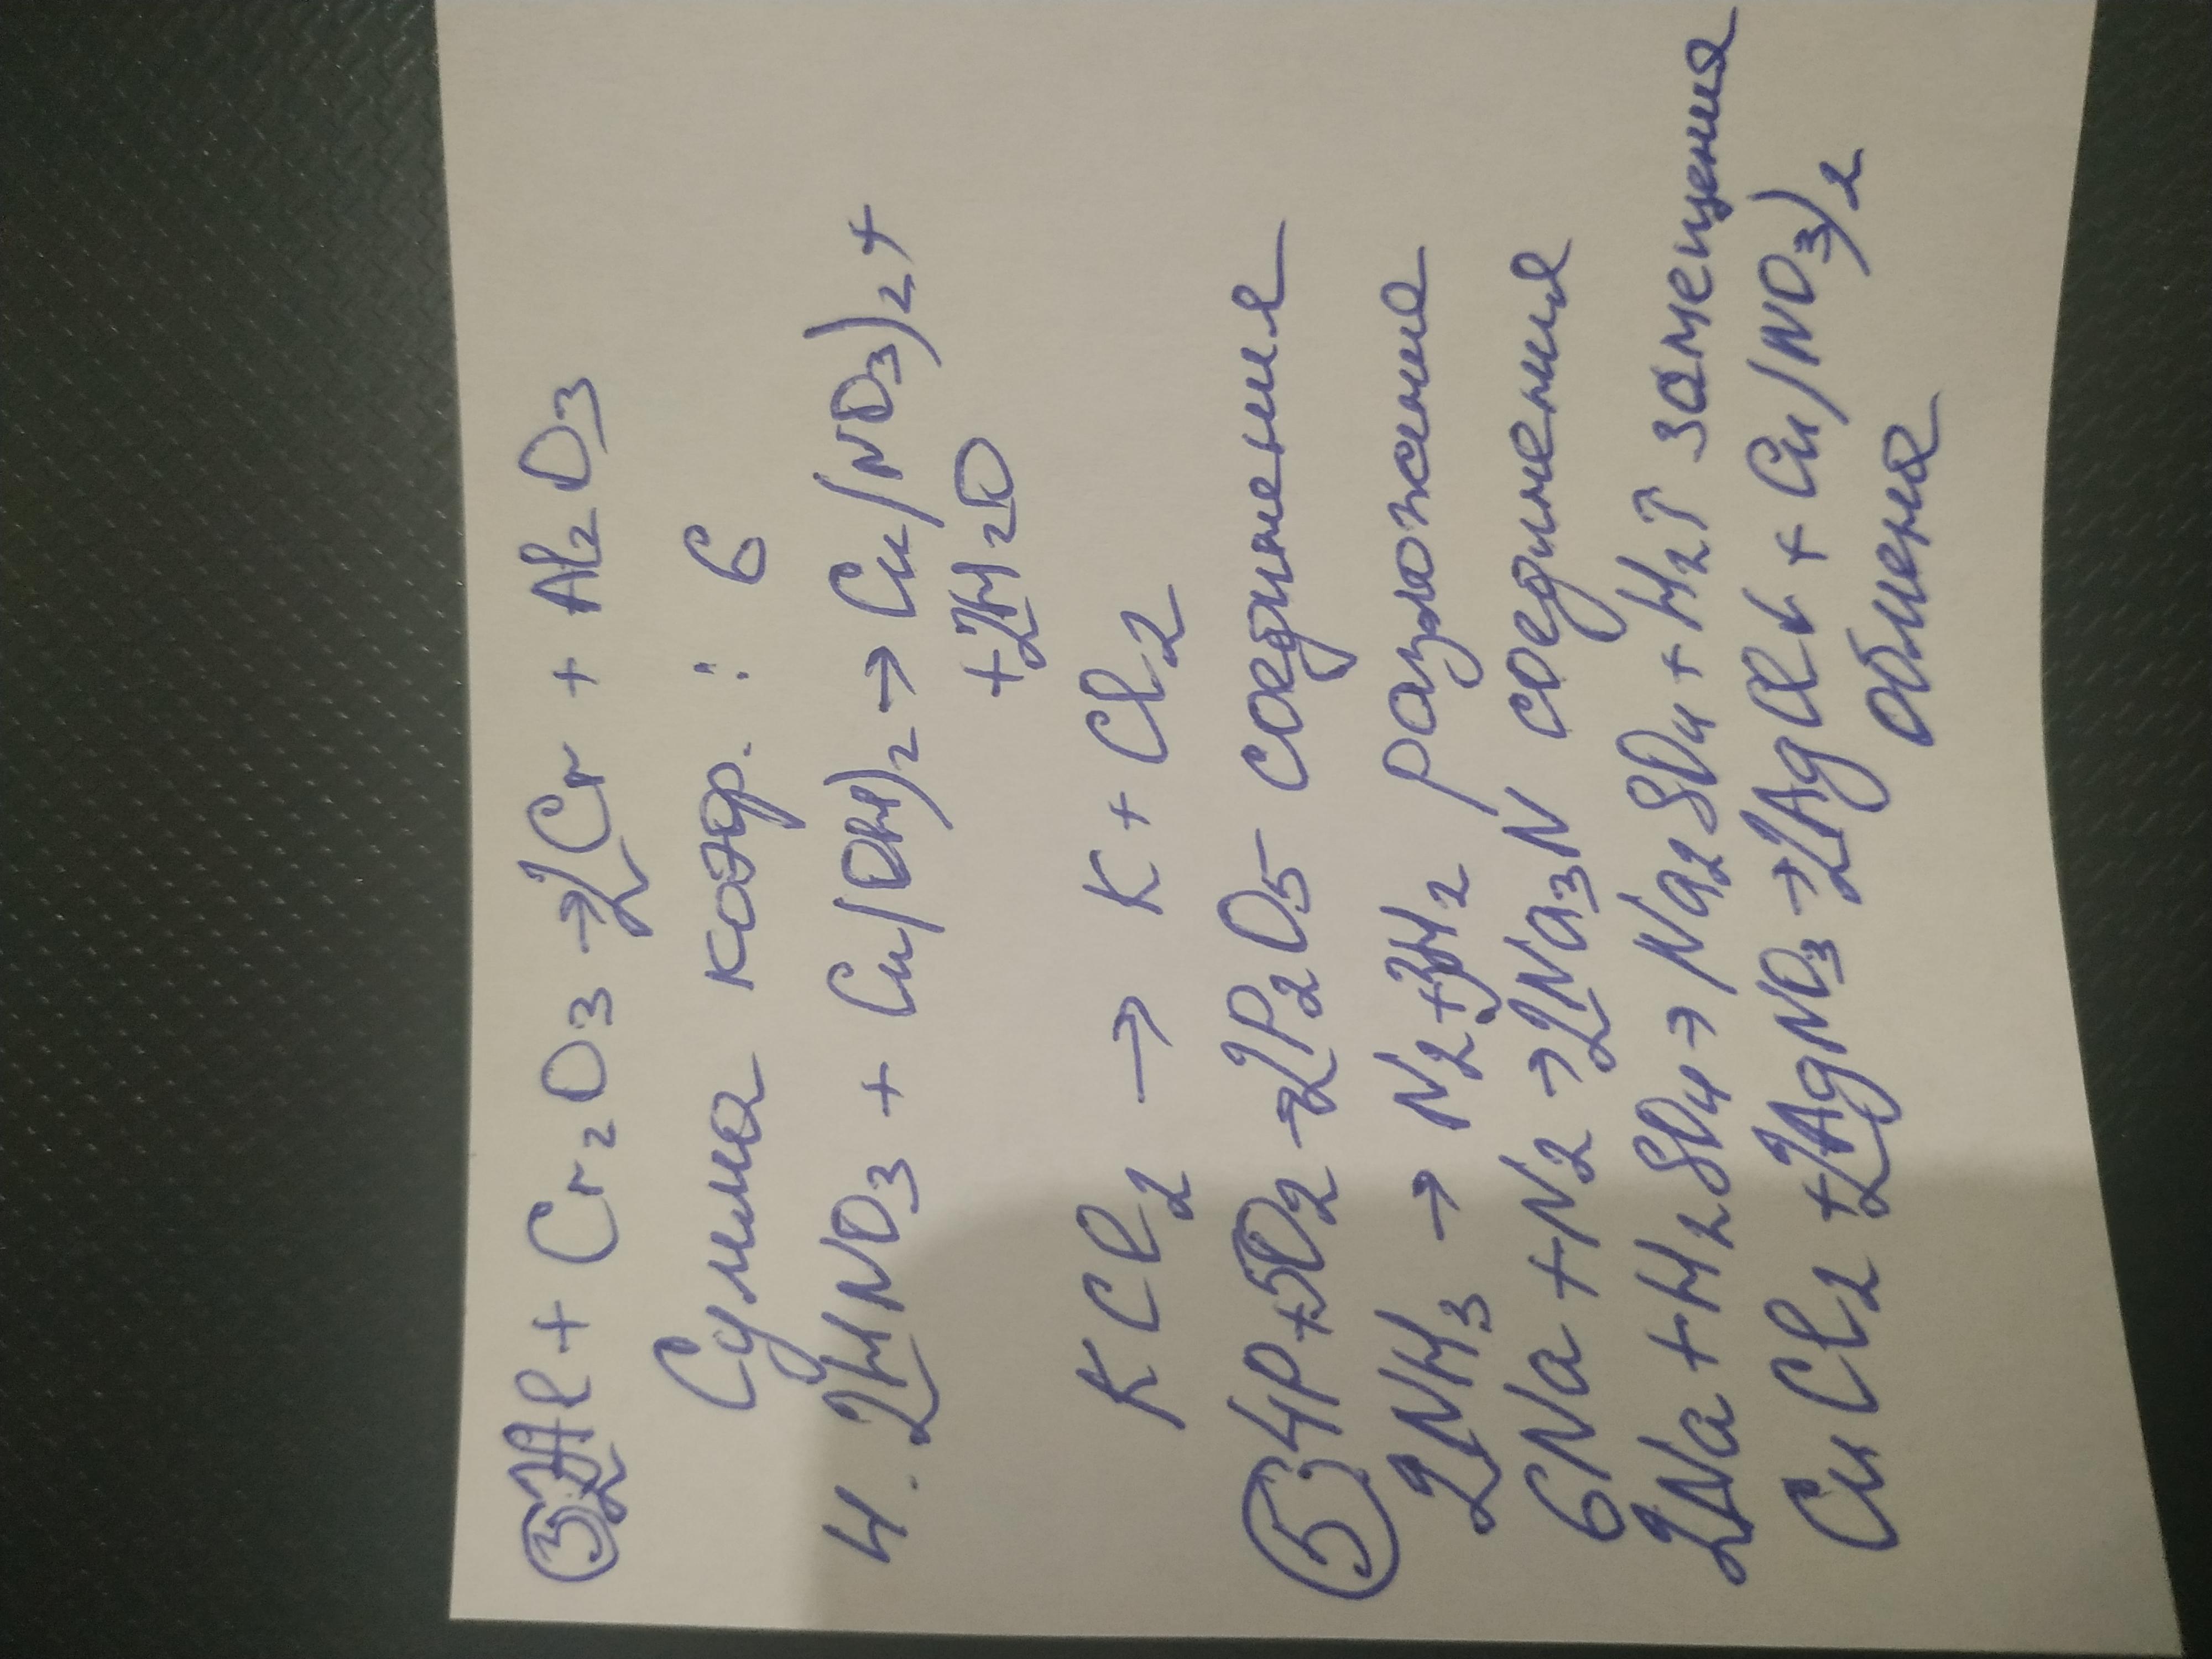 ③ 2Al + Cr₂O₃ → 2Cr + Al₂O₃
Сумма коэф. : 6
4. 2HNO₃ + Cu(OH)₂ → Cu(NO₃)₂ +
+ 2H₂O
KCl₂ → K + Cl₂
⑤ 4P + 5O₂ → 2P₂O₅ - соединения
2NH₃ → N₂ + 3H₂ разложения
6Na + N₂ → 2Na₃N соединения
2Na + H₂SO₄ → Na₂SO₄ + H₂↑ замещения
CuCl₂ + 2AgNO₃ → 2AgCl↓ + Cu(NO₃)₂
обмена